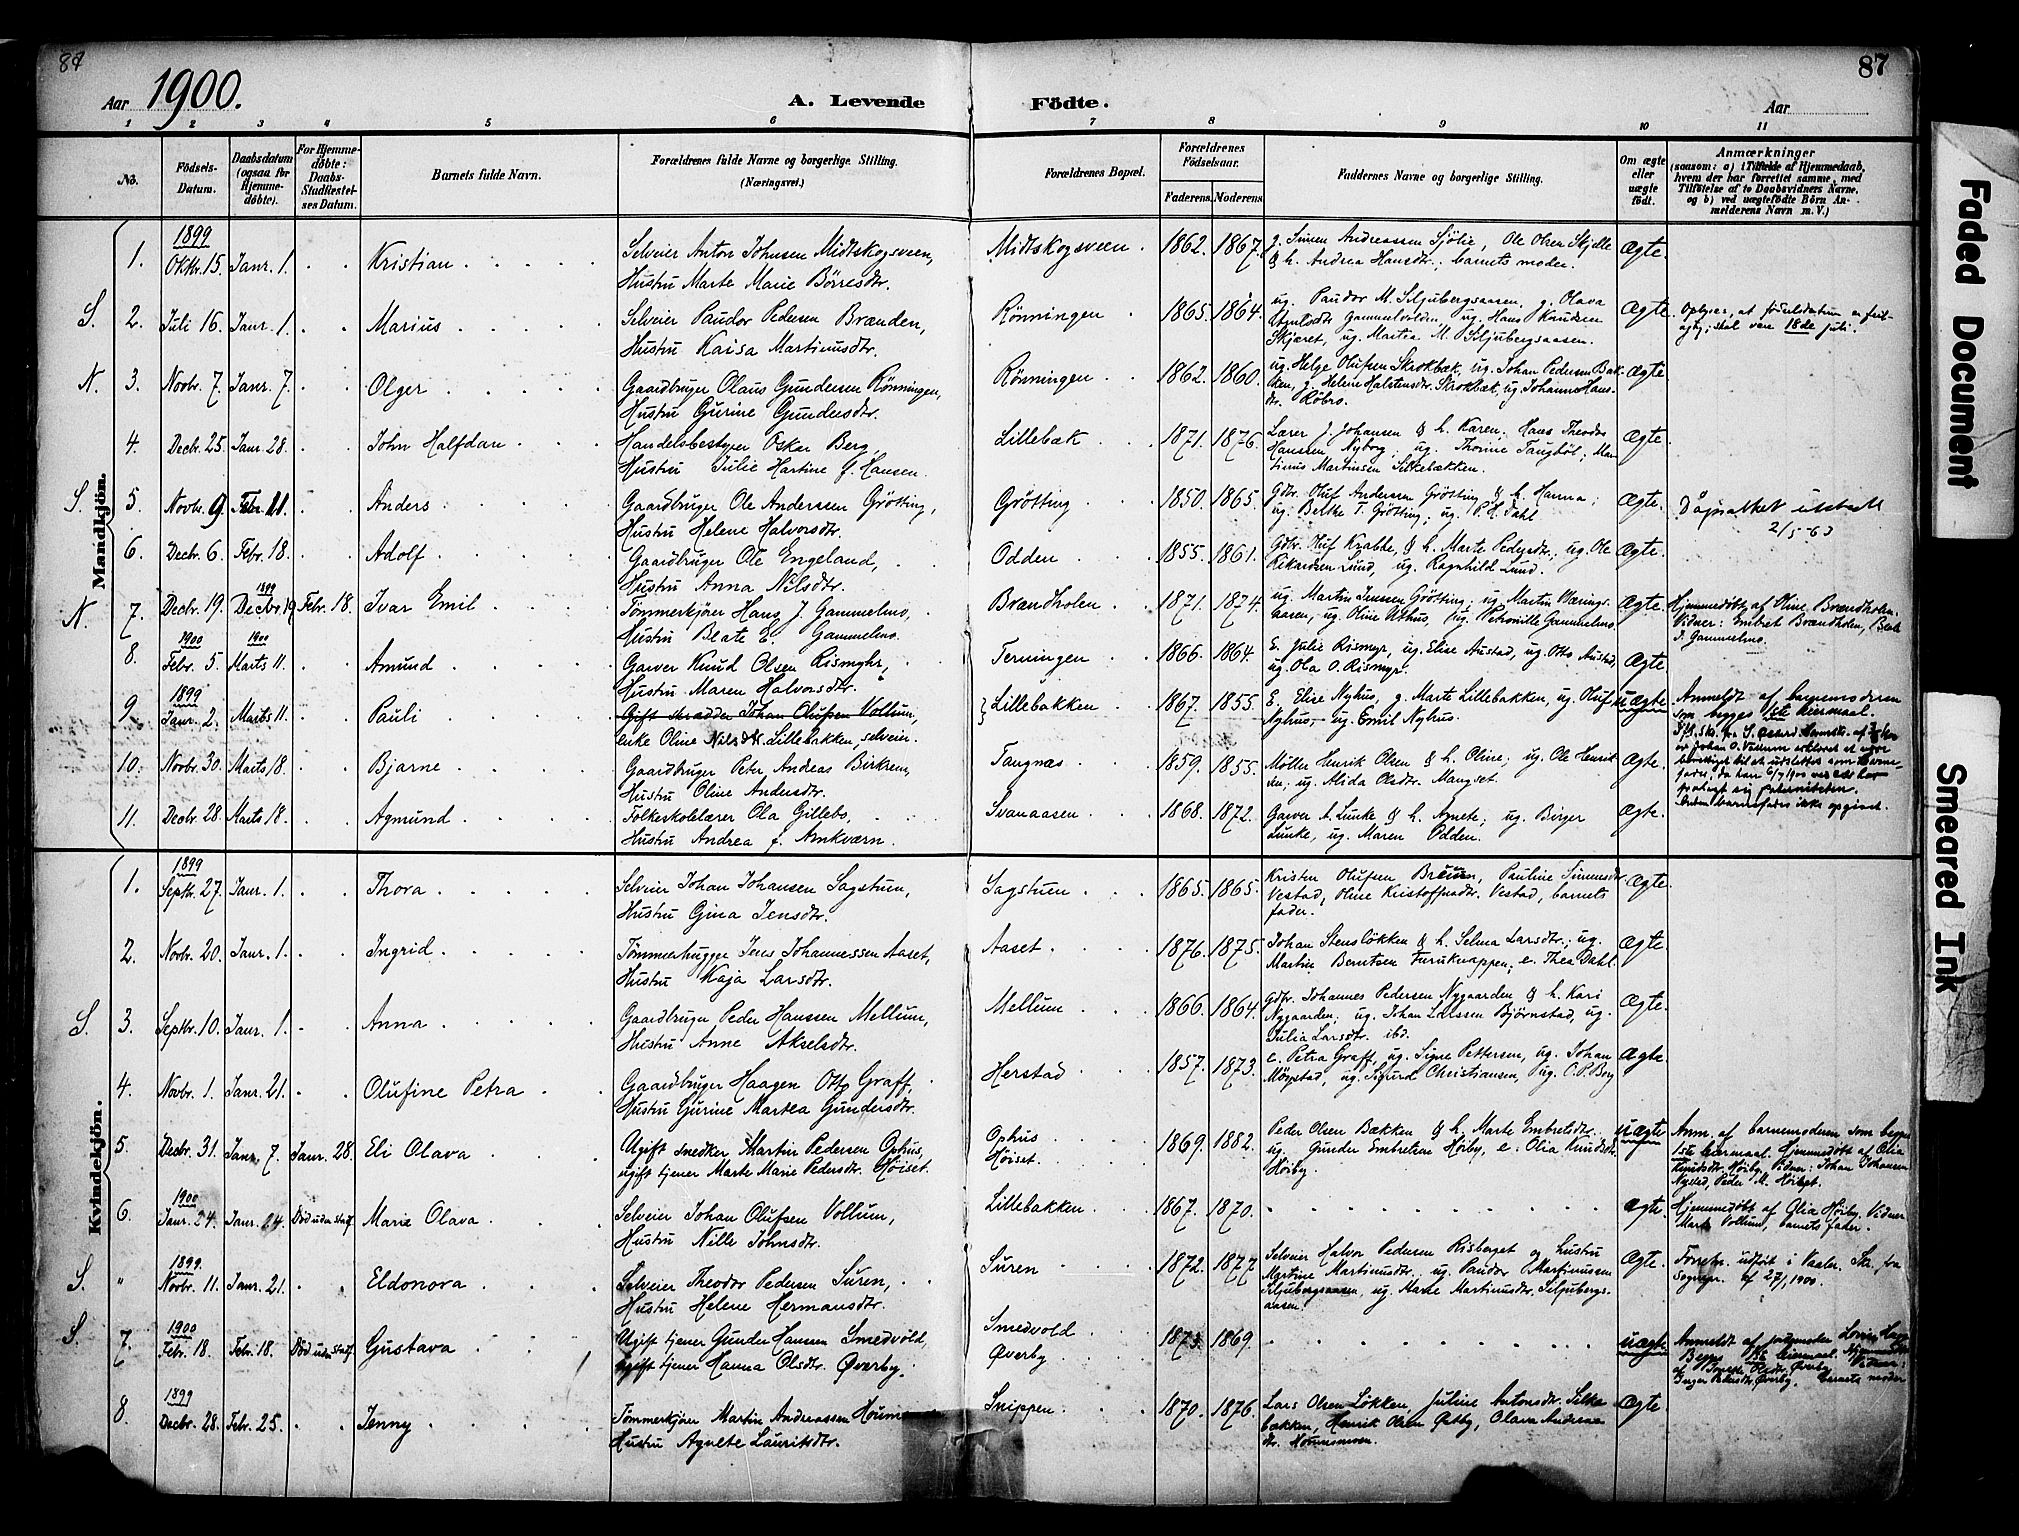 87
87
Aar 1900.
A. Levende Födte.
Aar
1 2 3 4 5 6 7 8 9 10 11
No.
Födsels-Datum.
Daabsdatum (ogsaa for Hjemme-döbte).
For Hjemme-döbte: Daabs-Stadfæstel-ses Datum.
Barnets fulde Navn.
Forældrenes fulde Navne og borgerlige Stilling.
(Næringsvei.)
Forældrenes Bopæl.
Forældrenes Födselsaar.
Faderens. Moderens
Faddernes Navne og borgerlige Stilling.
Om ægte eller uægte födt.
Anmærkninger
(saasom: a) i Tilfælde af Hjemmedaab, hvem der har forrettet samme, med Tilföielse af to Daabsvidners Navne, og b) ved uægtefödte Börn An-melderens Navn m. V.)
Mandkjön.
1. 1899 Oktbr. 15. Janr. 1. Kristian
Selveier Anton Johnsen Midtskogsveen,
Hustru Marte Marie Börresdtr.
Midtskogsveen 1862. 1867.
g. Simen Andreassen Sjölie, Ole Olsen Skjelle
& h. Andrea Hansdtr.; barnets moder.
Ægte.
S. 2. Juli 16. Janr. 1. Marius
Selveier Paudor Pedersen Brænden,
Hustru Kaisa Martinusdtr.
Rönningen 1865. 1864.
ug. Paudor M. Siljubergsaasen, g. Olava
Gammelvolden ug. Hans Knudsen
Skjæret, ug. Martea M. Siljubergsaasen.
Ægte. Oplyses, at födselsdatum er feil-
agtig; skal være 18de juli.
N. 3. Novbr. 7. Janr. 7. Olger
Gaardbruger Olaus Gundersen Rönningen,
Hustru Gurine Gundersdtr.
Rönningen 1862. 1860.
ug. Helge Olufsen Skrokbæk, ug. Johan Pedersen Bak-
ken, g. Helene Halstensdtr. Skrokbæk, ug Johanne Hans-
dtr. Röbro.
Ægte
4. Decbr. 25. Janr. 28. John Halfdan
Handelsbestyrer Oskar Berg,
Hustru Julie Hartine f. Hansen.
Lillebæk 1871. 1876.
Lærer J. Johansen & h. Karen; Hans Theodor
Hanssen, Nyborg; ug. Thonine Taugböl; Mar-
tinus Martinssen Silkebækken.
Ægte.
S. 5. Novbr. 9. Febr. 11. Anders
Gaardbruger Ole Anderssen Grötting,
Hustru Helene Halvorsdtr.
Grötting 1850. 1865.
Gdbr. Oluf Anderssen Grötting & h. Hanna;
ug. Belthe T. Grötting; ug. P. H. Dahl
Ægte. Dåpsattest utstedt
2/5-63
6. Decbr. 6. Febr. 18. Adolf
Gaardbruger Ole Engeland,
Hustru Anna Nilsdtr.
Odden 1855. 1861.
Gdbr. Oluf Krabbe, & h. Marte Pedersdtr., ug. Ole
Rikardsen Lund, ug. Ragnhild Lund.
Ægte.
N. 7. Decbr. 19. 1899 Decbr. 19 Febr. 18. Ivar Emil
Tömmerkjörer Hans J. Gammelmo,
Hustru Beate E. Gammelmo.
Brændholen 1871. 1874.
ug. Martin Jenssen Grötting; ug. Martin Værings-
aasen, ug. Oline Uthus, ug. Petronille Gammelmo.
Ægte. Hjemmedöbt af Oline Brændholen.
Vidner: Embret Brændholen, Beate
J. Gammelmo.
8. 1900 Febr. 5 1900 Marts 11. Amund
Garver Knud Olsen Rismyhr,
Hustru Maren Halvorsdtr.
Terningen 1866. 1864.
E. Julie Rismyr, ug. Elise Austad, ug. Otto Austad,
ug. Ola O. Rismyr.
Ægte
9. 1899 Janr. 2. Marts 11. Pauli
Gift skrædder Johan Olufsen Vollum,
enke Oline Nilsdtr. Lillebakken, selveier.
Lillebakken 1867. 1855.
E. Elise Nyhus, g. Marte Lillebakken, ug. Oluf
Nyhus, ug. Emil Nyhus.
uægte. Anmeldt af barnemoderen
som begges 1ste leiermaal.
10. Novbr. 30. Marts 18. Bjarne
Gaardbruger Peter Andreas Birkrem,
Hustru Oline Andersdtr.
Tangnæs 1859. 1855.
Möller Henrik Olsen & h. Oline; ug. Ole Henrik-
sen; ug. Alida Olsdtr. Mangset.
Ægte.
11. Decbr. 28. Marts 18. Agmund
Folkeskolelærer Ola Gillebo,
Hustru Andrea f. Amkværn.
Svanaasen 1868. 1872.
Garver A. Lunke & h. Agnete; ug. Birger
Lunke, ug. Maren Odden.
Ægte.
Kvindekjön.
1. 1899 Septbr. 27. Janr. 1. Thora
Selveier Johan Johansen Sagstuen,
Hustru Gina Jensdtr.
Sagstuen 1865. 1865.
Krister Olufsen Breuen, Pauline Simensdtr.
Vestad, Oline Kristoffersdtr. Vestad, barnets
fader.
Ægte.
2. Novbr. 20. Janr. 1. Ingrid
Tömmerhugger Jens Johannessen Aaset,
Hustru Kaja Larsdtr.
Aaset 1876. 1875.
Johan Stenslökken & h. Selma Larsdtr.; ug.
Martin Berntsen Furuknappen; e. Thea Dahl.
Ægte.
S. 3. Septbr. 10. Janr. 1. Anna
Gaardbruger Peder Hanssen Mellum,
Hustru Anne Akselsdtr.
Mellum 1866. 1864.
Gdbr. Johannes Pedersen Nygaarden & h. Kari
Nygaarden; ug. Johan Larssen Björnstad, ug.
Julia Larsdtr. ibd.
Ægte.
4. Novbr. 1. Janr. 21. Olufine Petra
Gaardbruger Haagen Otto Graff,
Hustru Gurine Martea Gundersdtr.
Herstad 1857. 1873.
e. Petra Graff, ug. Signe Pettersen, ug. Johan
Mörstad, ug. Sigurd Christiansen, ug. O. P. Berg
Ægte.
5. Decbr. 31. Janr. 7. Janr. 28. Eli Olava
Ugift snedker Martin Pedersen Ophus,
ugift tjener Marte Marie Pedersdtr. Höiset.
Ophus
Höiset. 1869. 1882.
Peder Olsen Bækken & h. Marte Embretsdtr.
ug. Gunder Embretsen Höiby, e. Olia Knudsdtr.
Höiby.
uægte Anm. af barnemoderen som begges
1ste leiermaal. Hjemmedöbt af Olia
Knutsdtr. Höiby. Vidner: Johan Johansen
Nysted, Peder M. Höiset.
6. 1900 Janr. 24. Janr. 24. Död uden stadf. Marie Olava
Selveier Johan Olufsen Vollum,
Hustru Nille Johnsdtr.
Lillebakken 1867. 1870.
Ægte. Hjemmedöbt af Olia Höiby. Vidner
Marte Vollum, barnets fader.
S. " 1899. Novbr. 11. Janr. 21. Eldonora
Selveier Theodor Pedersen Suren,
Hustru Helene Hermansdtr.
Suren 1872. 1877
Selveier Halvor Pedersen Risberget og hustru
Martine Martinusdtr. ug. Paudor Martinussen
Siljubergsaasen, ug. Marte Martinusdtr. Siljubergs-
aasen.
Ægte. Forretn. utfört i Vaaler. Skr. fra
Sognepr. af 27/1 1900.
S. 7. 1900 Febr. 18. Febr. 18. Död uden stadf. Gustava
Ugift tjener Gunder Hansen Smedvold,
ugift tjener Hanna Olsdtr. Överby.
Smedvold
Överby. 1873. 1869.
uægte Anmeldt af jordmoder
Begges 1ste leiermaal.
8. 1899 Decbr. 28. Febr. 25. Jenny
Tömmerkjörer Martin Andreassen
Hustru Agnete Lauritsdtr.
Snippen 1870. 1876.
Lars Olsen Lökken, Juline Antonsdtr. Silke-
bækken, Henrik Olsen Östby, Olava Andreas-
dtr.
Ægte.
Faded Document
Smeared Ink